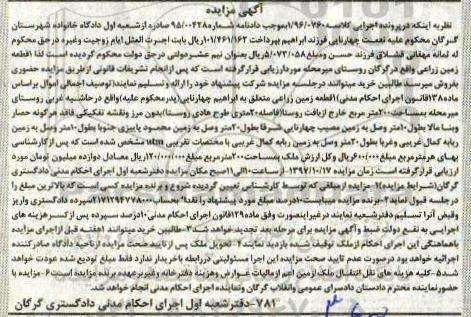 آگهی مزایده
نظر به اینکه در پرونده اجرایی کلاسه ۱/۹۶/۰۷۶۰ بموجب دادنامه شماره ۹۵/۰۰۴۲۸ صادره از شعبه اول دادگاه خانواده شهرستان
گرگان محکوم علیه نعمت چهارتایی فرزند ابراهیم بپرداخت ۱۰۱/۴۶۱/۱۶۲ ریال بابت اجرت المثل ایام زوجیت وغیره در حق محکوم
له لمانه مهقانی قشلاق فرزند حسن ومبلغ ۵/۰۷۳/۰۵۸ ریال بعنوان نیم عشر دولتی در حق دولت محکوم گردیده است لذا ۱قطعه
زمین زراعی واقع در گرگان روستای میرمحله مورد ارزیابی قرار گرفته است که پس از انجام تشریفات قانونی از طریق مزایده حضوری
بفروش میرسد ۱-طالبین خرید میتوانند در جلسه مزایده شرکت پیشنهاد خود را ارائه و تسلیم نمایند (توصیف اجمالی اموال براساس
ماده ۱۳۸ قانون اجرای احکام مدنی) ۱قطعه زمین زراعی متعلق به ابراهیم چهارتایی (پدر محکوم علیه) واقع در حاشیه غربی روستای
میرمحله بمساحت ۲۰۰ متر مربع خارج از بافت روستا (فاصله ۲۰متری طرح هادی روستا) بدون مرز ونقشه تفکیکی فاقد هرگونه حصار
وبنا مالا بطول ۱۰متر وصل به زمین مصیب چهارتایی شرقا بطول ۲۰متر وصل به زمین محمود پاییزی جنوبا بطول ۱۰متر وصل به زمین
ربابه کمال غریبی وغربا بطول ۲۰متر وصل به زمین ربابه کمال غریبی با مختصات تقریبی utm مشخص شده است که پس از کارشناسی
بهای هر متر مربع ۶۰۰/۰۰۰ ریال وکل ارزش ملک بمساحت ۲۰۰متر مربع مبلغ ۱۲۰/۰۰۰/۰۰۰ ریال معادل دوازده میلیون تومان مورد
ارزیابی قرار گرفته است زمان مزایده ۱۳۹۷/۱۰/۱۷ از ساعت ۱۰الی ۱۱صبح مکان مزایده دفتر شعبه اول اجرای احکام مدنی دادگستری
گرگان (شرایط مزایده) ۱-مزایده از مبلغی که توسط کارشناس تعیین گردیده شروع و برنده مزایده کسی است که بالاترین مبلغ را
در جلسه قبول نماید ۲-برنده مزایده میبایست ۱۰درصد مبلغ مورد مزایده را نقدا بحساب ۲۱۷۱۲۹۴۷۷۸۰۰۰ سپرده دادگستری واریز
وقبض آنرا تسلیم دفتر شعبه نمایند در غیر اینصورت وفق ماده ۱۲۹ قانون اجرای احکام مدنی ۱۰درصد سپرده پس از کسر هزینه های
اجرایی به نفع دولت ضبط و آگهی مزایده برای مرحله بعد تجدید خواهد شد ۳-طالبین خرید میتوانند ۱هفته قبل از مزایده
باهماهنگی این اجرای احکام از ملک توقیف شده بازدید نمایند ۴-تحویل ملک پس از تایید صحت مزایده از ناحیه دادگاه صادرکننده
اجرائیه خواهد بود در صورت عدم تایید صحت مزایده این اجرا مسئولیتی در رابطه با خریدار ندارد فقط مبلغ تودیع شده عودت خواهد
شد ۵-کلیه هزینه های نقل انتقال ملک اززمین اعم از مالیات عوارض وهزینه دفترخانه وغیر برعهده برنده مزایده است ۶-مزایده با
حضور نماینده محترم دادستان دادسرای عمومی وانقلاب گرگان ونماینده اجرای احکام مدنی انجام خواهد شد.
۷۸۱-دفتر شعبه اول اجرای احکام مدنی دادگستری گرگان